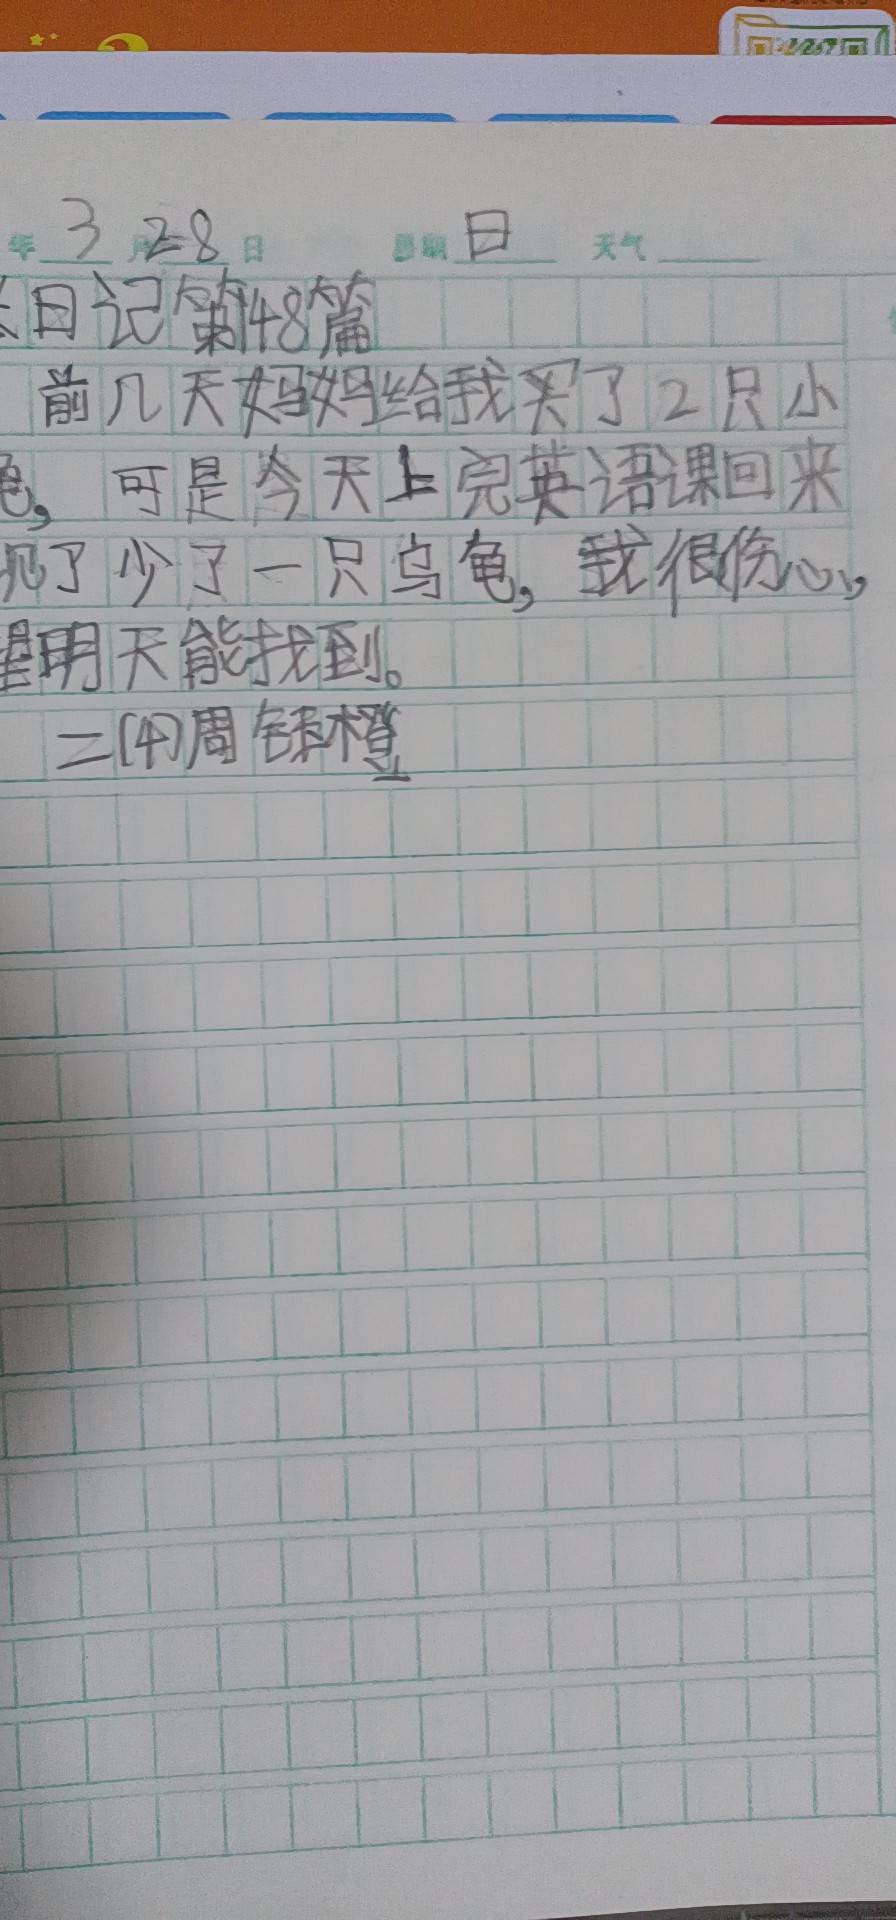 年 3 月 28 日 星期 日 天气
日记第48篇
前几天妈妈给我买了2只小
龟,可是今天上完英语课回来
现了少了一只乌龟,我很伤心,
望明天能找到。
二(4)周钰橙